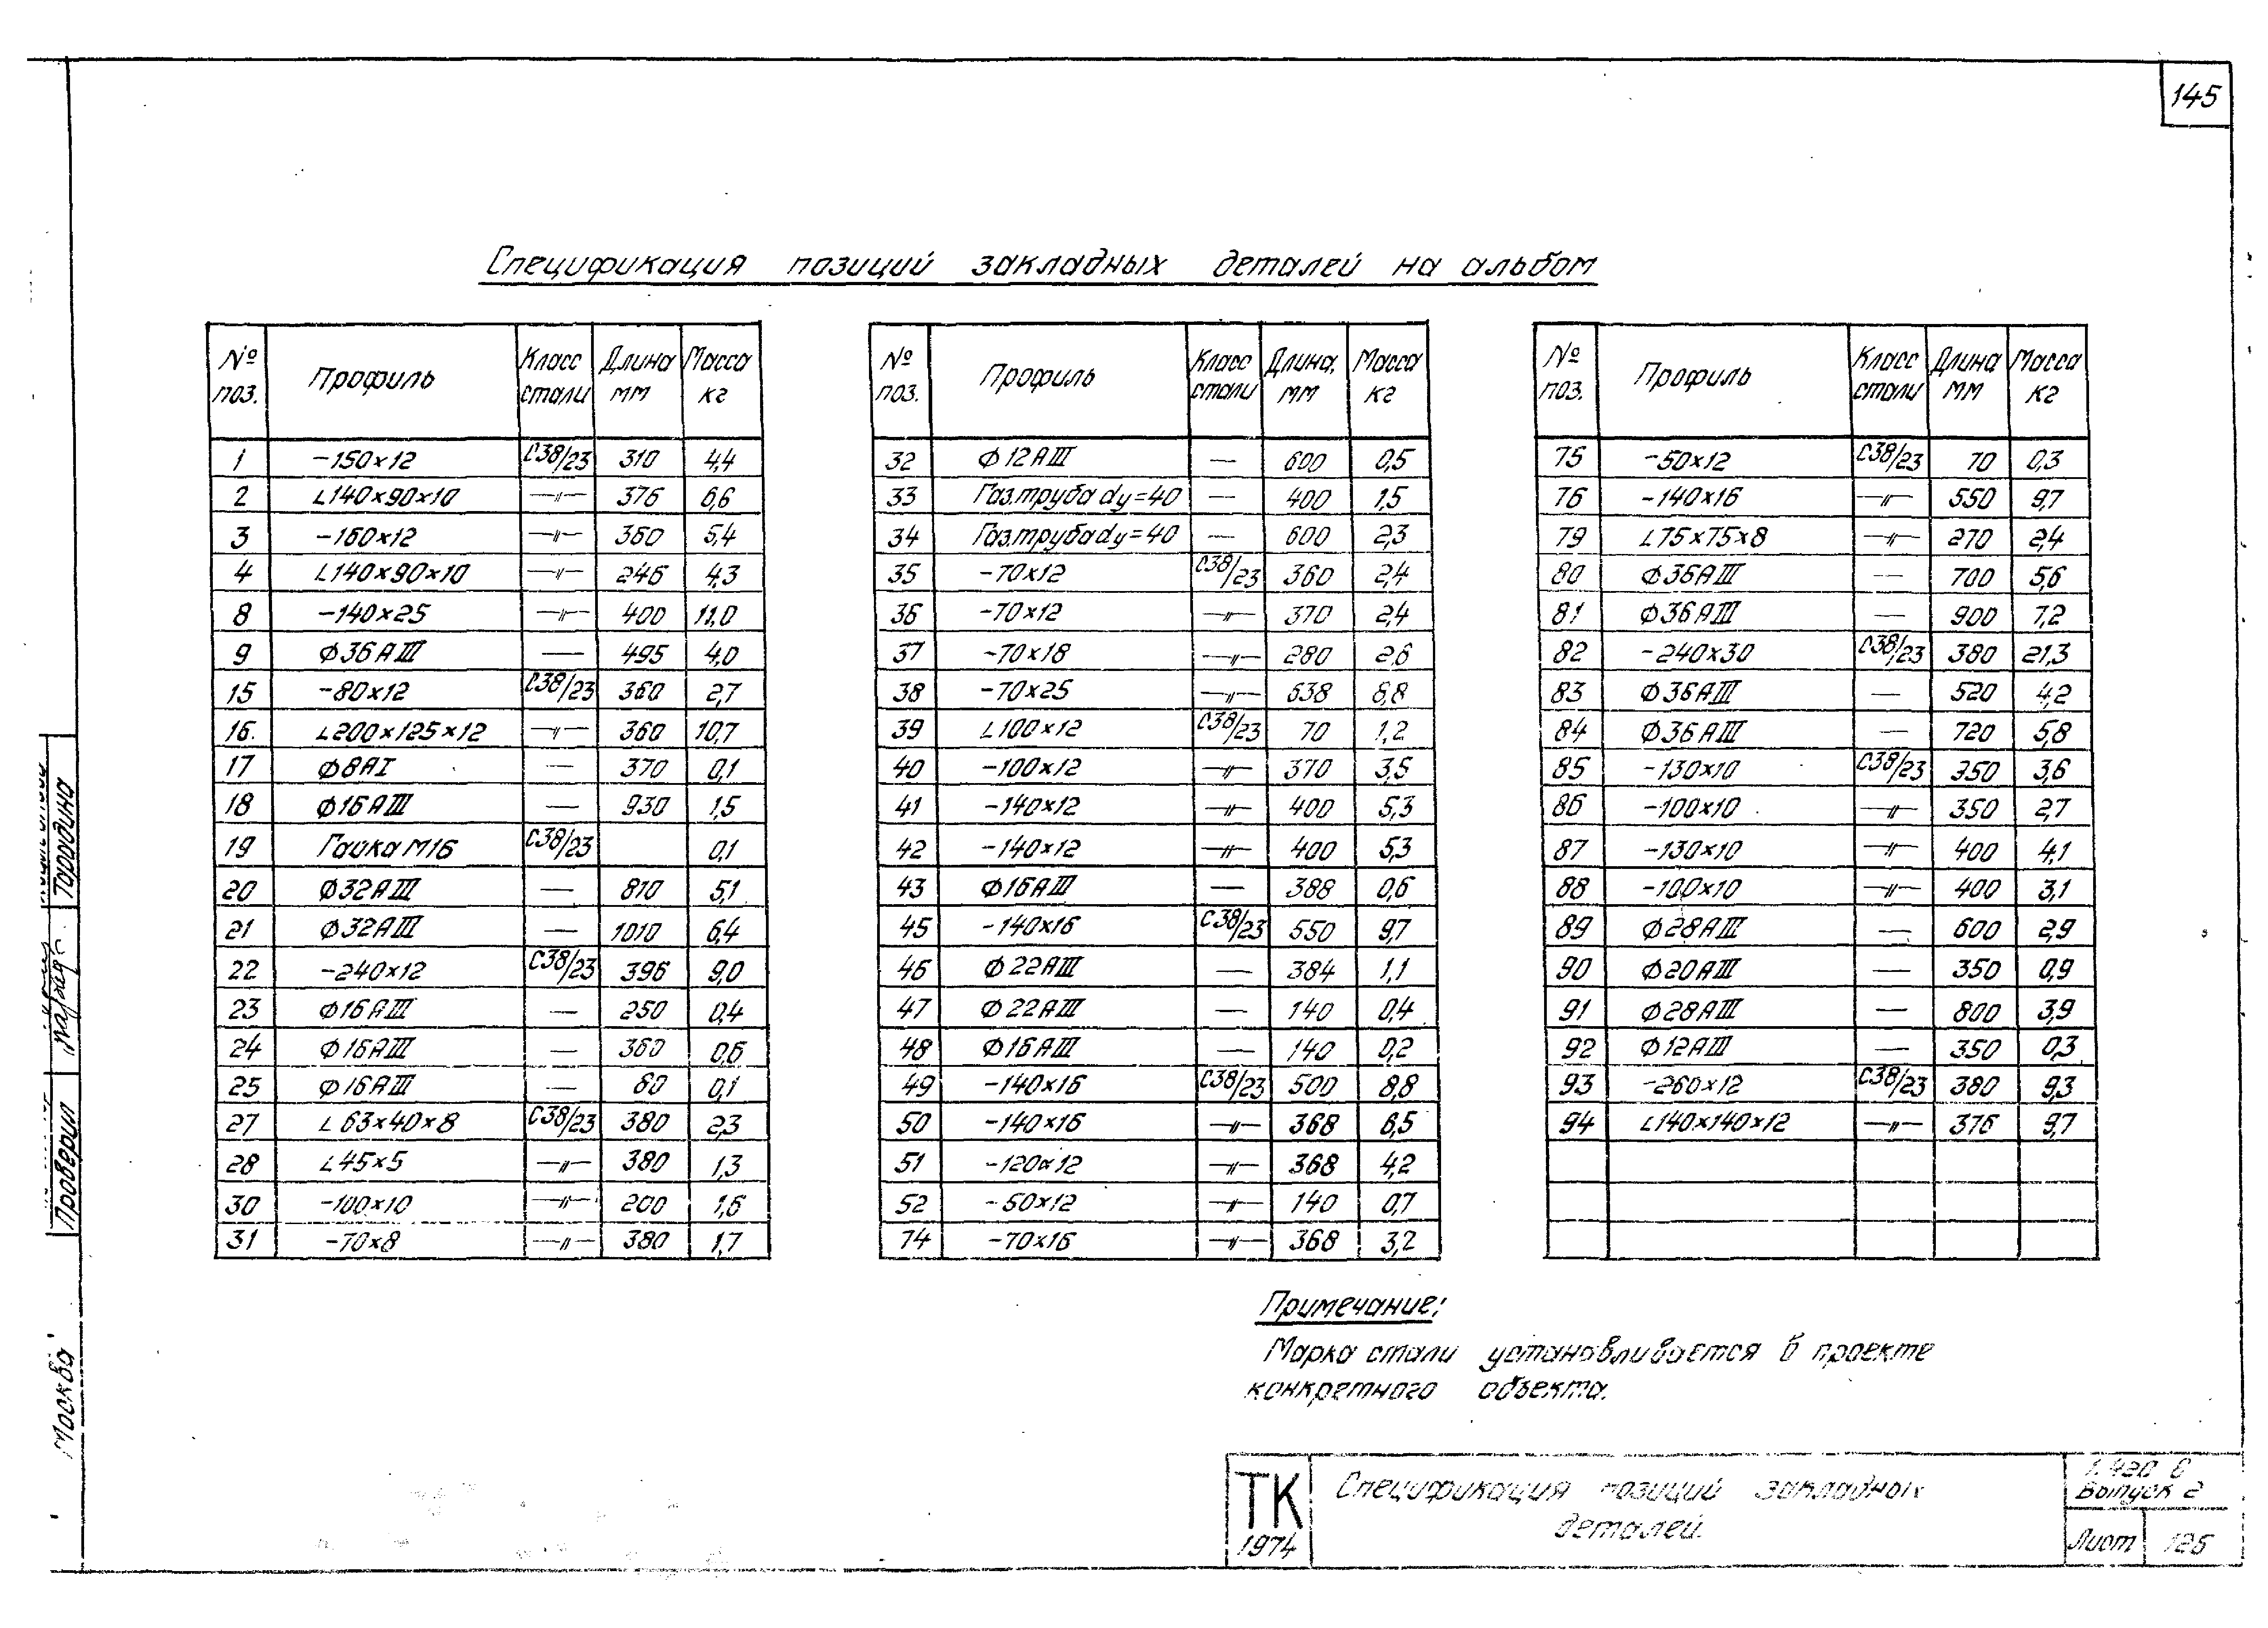 145
Спецификация позиций закладных деталей на альбом
№ поз. Профиль Класс стали Длина мм Масса кг
1 -150×12 С38/23 310 4,4
2 L140×90×10 —〃— 376 6,6
3 -160×12 —〃— 360 5,4
4 L140×90×10 —〃— 246 4,3
8 -140×25 —〃— 400 11,0
9 Ф36АIII — 495 4,0
15 -80×12 С38/23 360 2,7
16. L200×125×12 —〃— 360 10,7
17 Ф8АI — 370 0,1
18 Ф16АIII — 930 1,5
19 Гайка М16 С38/23 0,1
20 Ф32АIII — 810 5,1
21 Ф32АIII — 1010 6,4
22 -240×12 С38/23 396 9,0
23 Ф16АIII — 250 0,4
24 Ф16АIII — 360 0,6
25 Ф16АIII — 80 0,1
27 L63×40×8 С38/23 380 2,3
28 L45×5 —〃— 380 1,3
30 -100×10 —〃— 200 1,6
31 -70×8 —〃— 380 1,7
№ поз. Профиль Класс стали Длина, мм Масса кг
32 Ф12АIII — 600 0,5
33 Газ.труба dу=40 — 400 1,5
34 Газ.труба dу=40 — 600 2,3
35 -70×12 С38/23 360 2,4
36 -70×12 —〃— 370 2,4
37 -70×18 —〃— 280 2,6
38 -70×25 —〃— 638 8,8
39 L100×12 С38/23 70 1,2
40 -100×12 —〃— 370 3,5
41 -140×12 —〃— 400 5,3
42 -140×12 —〃— 400 5,3
43 Ф16АIII — 388 0,6
45 -140×16 С38/23 550 9,7
46 Ф22АIII — 384 1,1
47 Ф22АIII — 140 0,4
48 Ф16АIII — 140 0,2
49 -140×16 С38/23 500 8,8
50 -140×16 —〃— 368 6,5
51 -120×12 —〃— 368 4,2
52 -50×12 —〃— 140 0,7
74 -70×16 —〃— 368 3,2
№ поз. Профиль Класс стали Длина мм Масса кг
75 -50×12 С38/23 70 0,3
76 -140×16 —〃— 550 9,7
79 L75×75×8 —〃— 270 2,4
80 Ф36АIII — 700 5,6
81 Ф36АIII — 900 7,2
82 -240×30 С38/23 380 21,3
83 Ф36АIII — 520 4,2
84 Ф36АIII — 720 5,8
85 -130×10 С38/23 350 3,6
86 -100×10 —〃— 350 2,7
87 -130×10 —〃— 400 4,1
88 -100×10 —〃— 400 3,1
89 Ф28АIII — 600 2,9
90 Ф20АIII — 350 0,9
91 Ф28АIII — 800 3,9
92 Ф12АIII — 350 0,3
93 -260×12 С38/23 380 9,3
94 L140×140×12 —〃— 376 9,7
Примечание:
Марка стали устанавливается в проекте
конкретного объекта.
ТК
1974
Спецификация позиций закладных
деталей.
Выпуск 2
Лист 126
Проверил
Тарадина
Москва